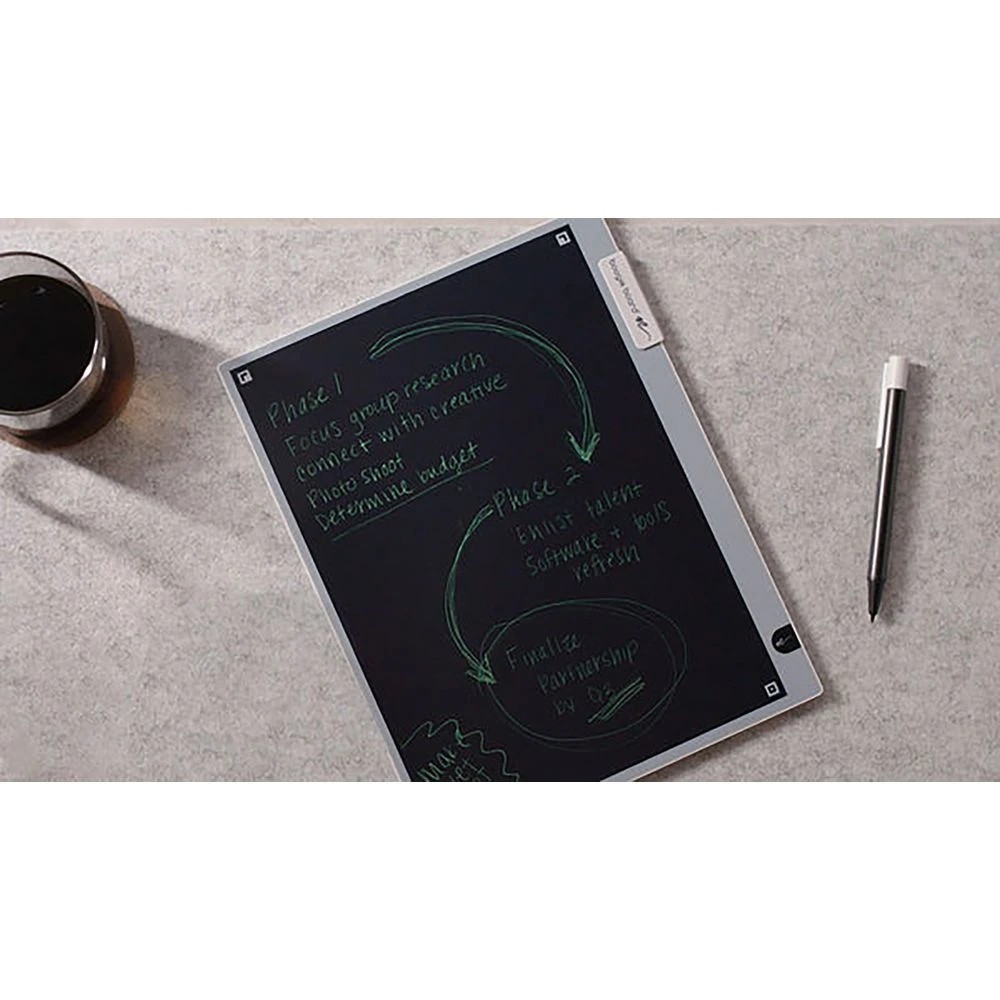 boogie board
Phase 1
Focus group research
connect with creative
Photo shoot
Determine budget
Phase 2
Enlist talent
Software + tools
refresh
Finalize
Partnership
by Q3
Make